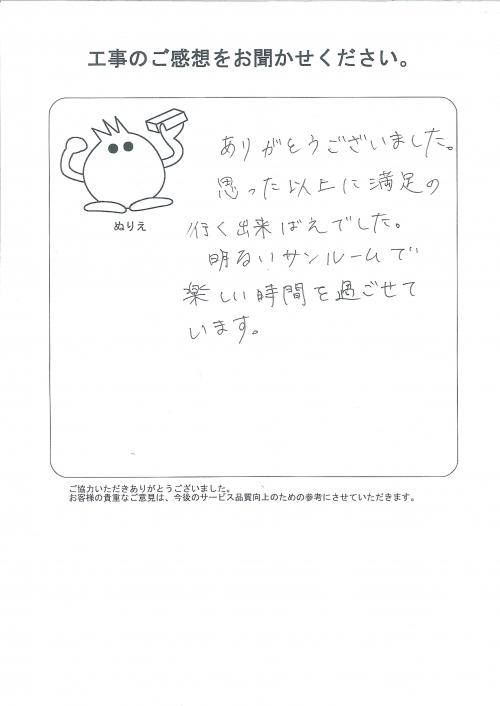 工事のご感想をお聞かせください。
ぬりえ
ありがとうございました。
思った以上に満足の
行く出来ばえでした。
明るいサンルームで
楽しい時間を過ごせて
います。
ご協力いただきありがとうございました。
お客様の貴重なご意見は、今後のサービス品質向上のための参考にさせていただきます。